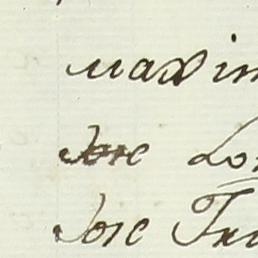 Maxim
Jose Lo
Jose Tri